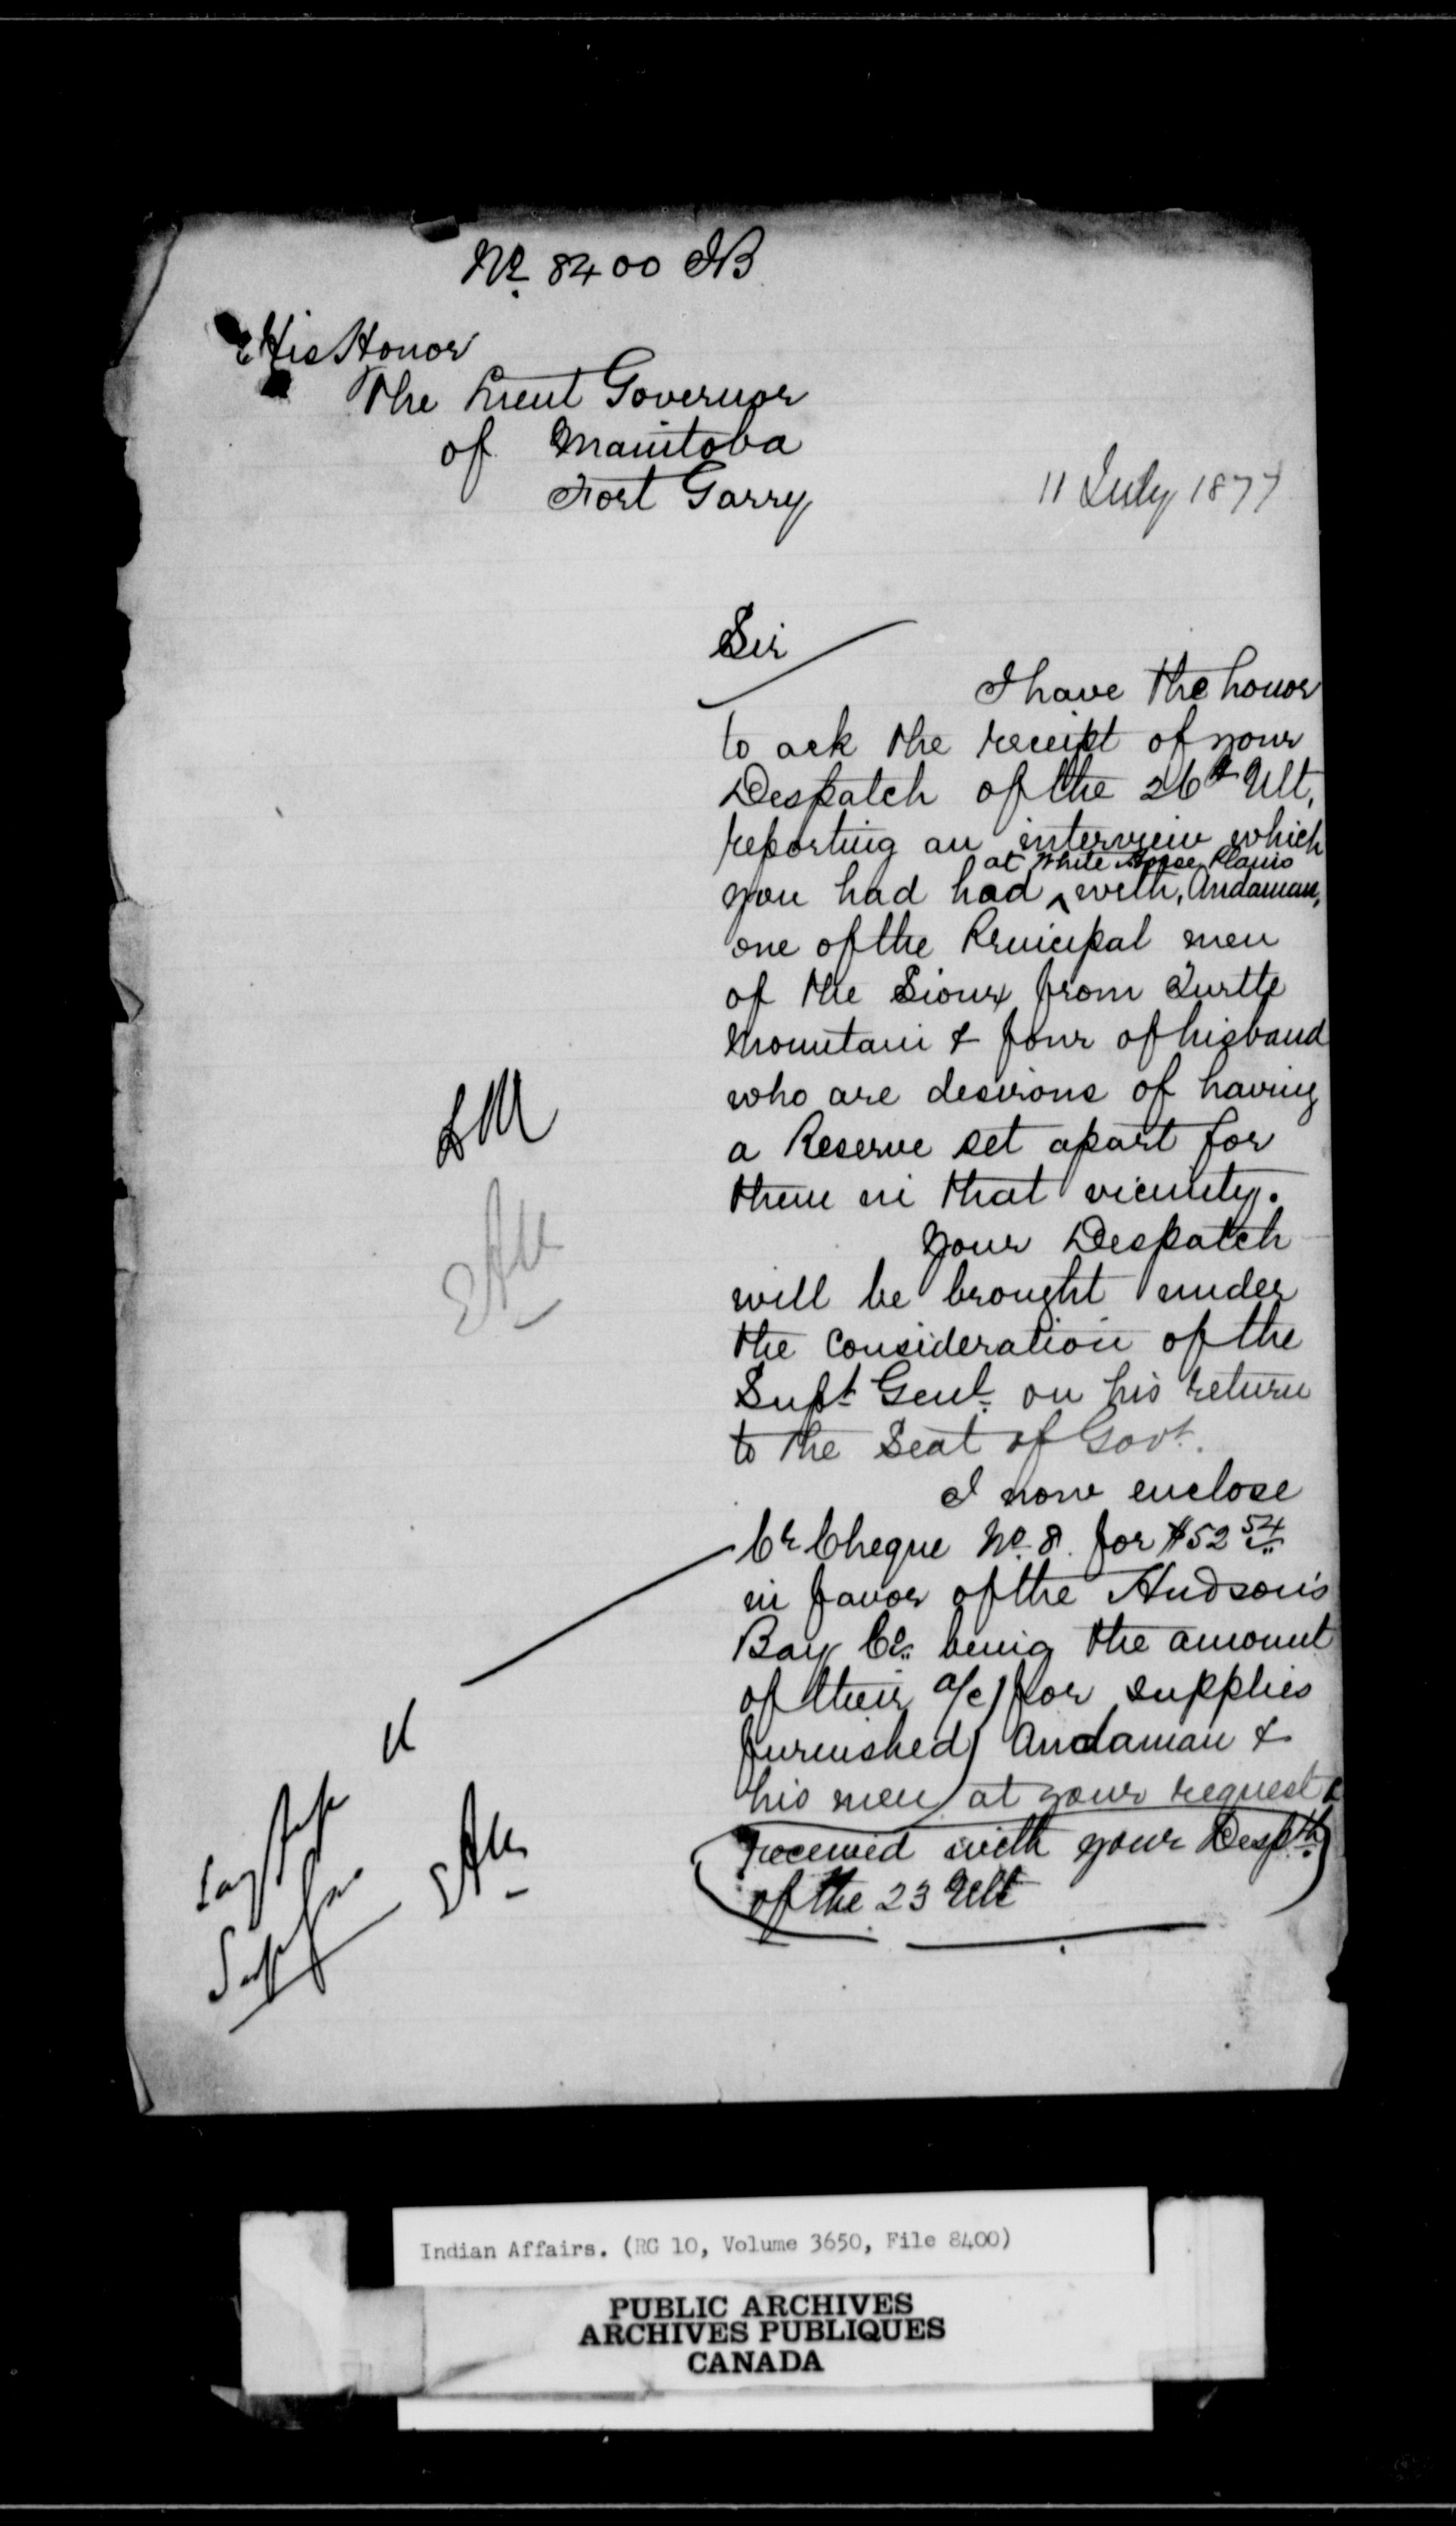 No. 8400 IB
His Honor
The Lieut Governor
of Manitoba
Fort Garry
11 July 1877
Sir
I have the honor
to ack the receipt of your
Despatch of the 26th Ult,
reporting an interview which
at White Horse Plains
you had had ^ with, Andaman,
one of the Principal men
of the Sioux from Turtle
Mountain & four of his band
who are desirous of having
a Reserve set apart for
them in that vicinity.
Your Despatch
will be brought under
the consideration of the
Supt. Genl. on his return
to the Seat of Govt.
I now enclose
Cr Cheque No. 8. for $52 54
in favor of the Hudson's
Bay Co. being the amount
of their a/c for supplies
furnished Andaman &
his men at your request &
received with your Despth
of the 23 Ult
LM
Indian Affairs. (RG 10, Volume 3650, File 8400)
PUBLIC ARCHIVES
ARCHIVES PUBLIQUES
CANADA